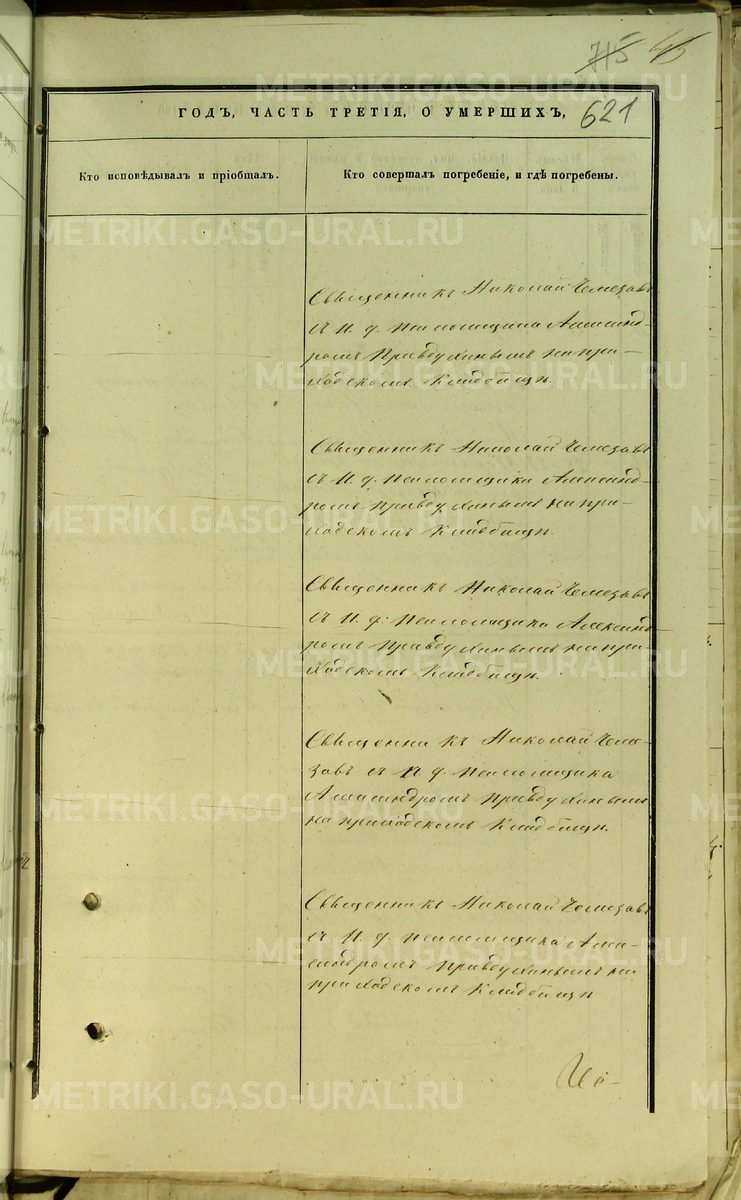 715 45
ГОДЪ, ЧАСТЬ ТРЕТІЯ, О УМЕРШИХЪ,
621
Кто исповѣдывалъ и пріобщалъ.
Кто совершалъ погребеніе, и гдѣ погребены.
Священникъ Николай Чемезовъ
съ И. д. псаломщика Александ-
ромъ Правдухинымъ на при-
ходскомъ кладбищѣ.
Священникъ Николай Чемезовъ
съ И. д. псаломщика Александ-
ромъ Правдухинымъ на при-
ходскомъ кладбищѣ.
Священникъ Николай Чемезовъ
съ И. д. псаломщика Александ-
ромъ Правдухинымъ на при-
ходскомъ кладбищѣ.
Священникъ Николай Чеме-
зовъ съ И. д. псаломщика
Александромъ Правдухинымъ
на приходскомъ кладбищѣ.
Священникъ Николай Чемезовъ
съ И. д. псаломщика Але-
ксандромъ Правдухинымъ на
приходскомъ кладбищѣ
METRIKI.GASO-URAL.RU